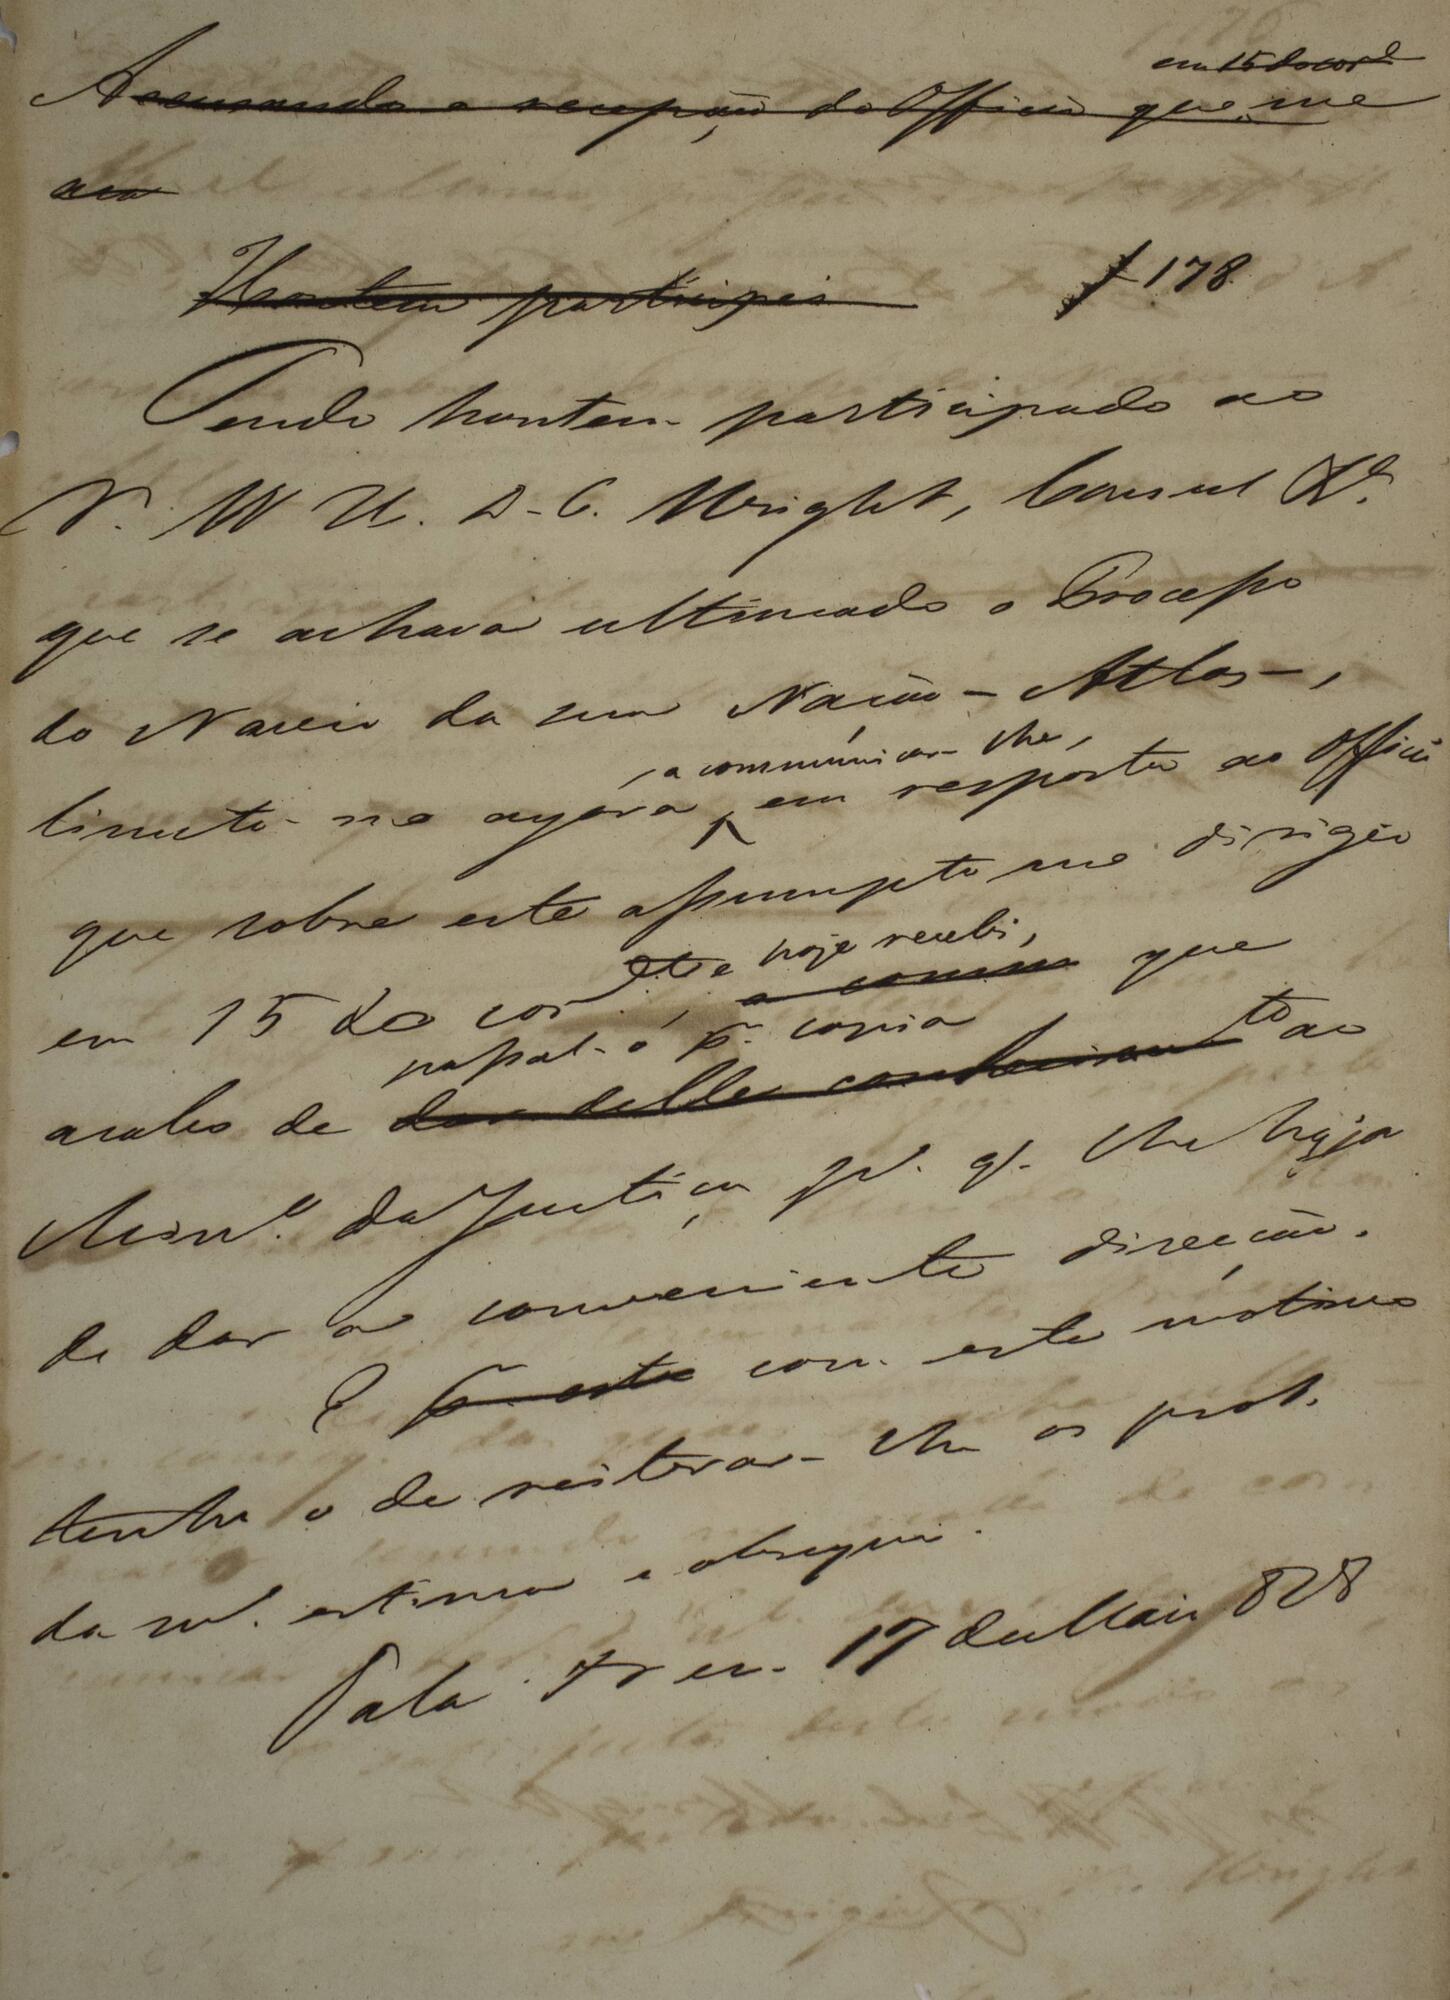 em 15 do corr.e
Accusando a recepção do Officio que me
aca
Hontem participei
178
Tendo hontem participado ao
Sr. W. H. D. C. Wright, Consul &a.
que se achava ultimado o Processo
do Navio da sua Nação - Atlas -,
limito-me agora
, a communicar-lhe,
em resposta ao Officio
que sobre este assumpto me dirigio
em 15 do corr
e hoje recebi,
a commu que
passal-o pr. copia
acabo de dar delle conhecim.to ao
Minro. da Justiça pa. q. lhe haja
de dar a conveniente direcção.
E pr esta com este motivo
tenho o de reiterar-lhe os prot.
da ma. estima e obsequio.
Palacio em 17 de Maio 828